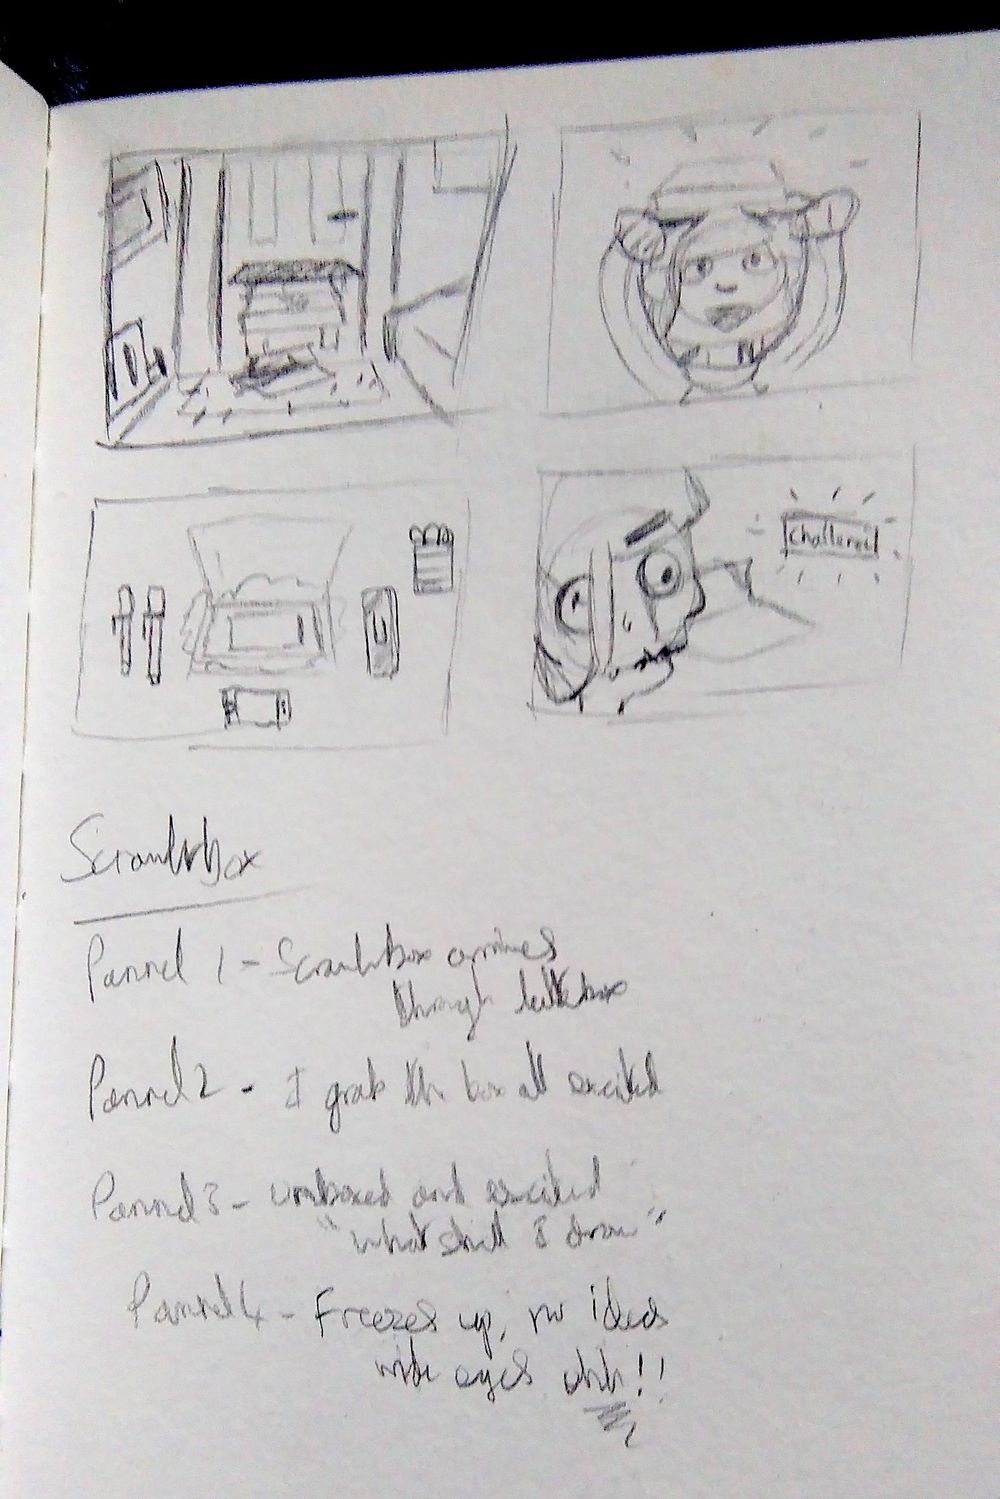 Challenge!
Scrawlrbox
Pannel 1 - Scrawlrbox arrives
through letterbox
Pannel 2 - I grab the box all excited
Pannel 3 - unboxed and excited
"what shall I draw"
Pannel 4 - Freezes up, no ideas
wide eyes uhh!!